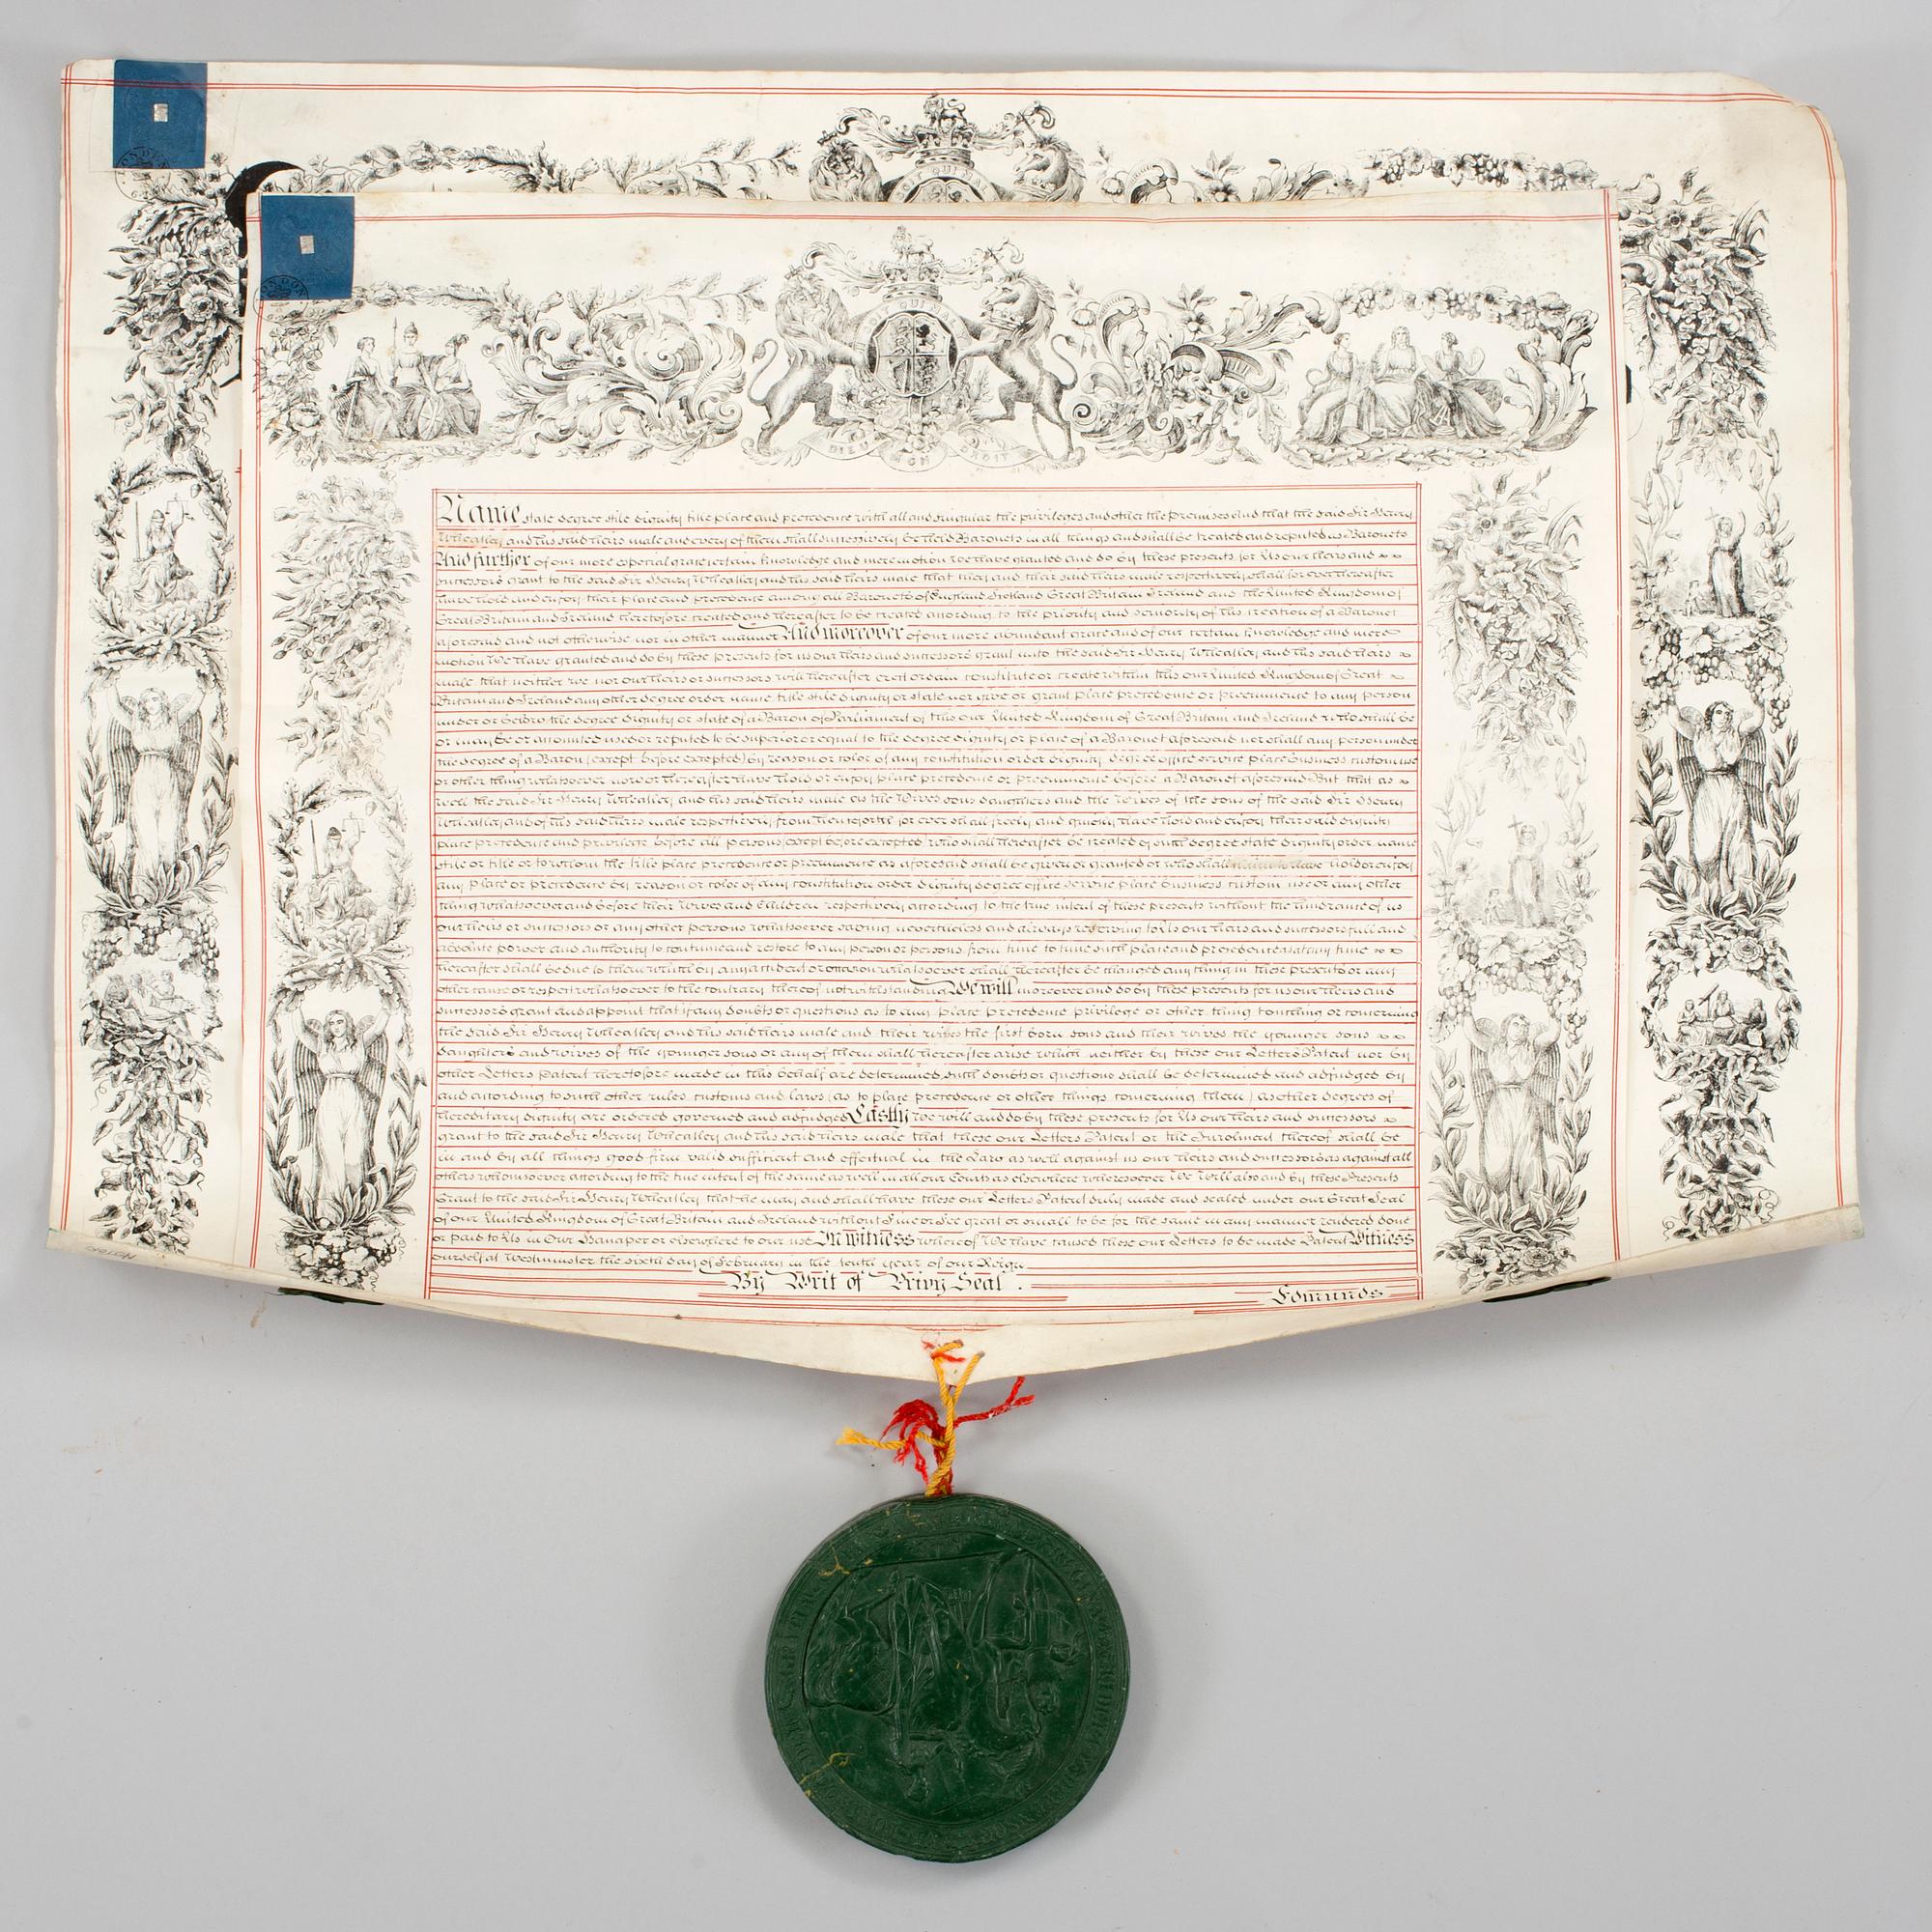 LONDON
QUI
QUI
DIEU MON DROIT
Name state degree stile dignity title place and precedence with all and singular the privileges and other the premises and that the said Sir Henry
Wheatley and his said heirs male and every of them shall successively be Baronets in all things and shall be treated and reputed as Baronets
And further of our more especial grace certain knowledge and mere motion we have granted and do by these presents for Us our heirs and
successors grant to the said Sir Henry Wheatley and his said heirs male that they and their said heirs male respectively shall for ever hereafter
have hold and enjoy their place and precedence among all Baronets of England Scotland Great Britain Ireland and the United Kingdom of
Great Britain and Ireland heretofore created and hereafter to be created according to the priority and seniority of this creation of a Baronet
aforesaid and not otherwise nor in other manner And moreover of our more abundant grace and of our certain knowledge and mere
motion We have granted and do by these presents for us our heirs and successors grant unto the said Sir Henry Wheatley and his said heirs
male that neither we nor our heirs or successors will hereafter erect ordain constitute or create within this our United Kingdom of Great
Britain and Ireland any other degree order name title stile dignity or state nor give or grant place precedence or preeminence to any person
under or before the degree dignity or state of a Baron of Parliament of this our United Kingdom of Great Britain and Ireland who shall be
or may be or accounted used or reputed to be superior or equal to the degree dignity or place of a Baronet aforesaid nor shall any person under
the degree of a Baron (except before excepted) by reason or color of any constitution order dignity degree office service place business custom use
or other thing whatsoever now or hereafter have hold or enjoy place precedence or preeminence before a Baronet aforesaid But that as
well the said Sir Henry Wheatley and his said heirs male as the Wives sons daughters and the Wives of the sons of the said Sir Henry
Wheatley and of his said heirs male respectively from henceforth for ever shall freely and quietly have hold and enjoy their said dignity
place precedence and privilege before all persons (except before excepted) who shall hereafter be created of such degree state dignity order name
stile or title or to whom the title place precedence or preeminence as aforesaid shall be given or granted or who shall have hold or enjoy
any place or precedence by reason or color of any constitution order dignity degree office service place business custom use or any other
thing whatsoever and before their Wives and Children respectively according to the true intent of these presents without the hindrance of us
our heirs or successors or any other persons whatsoever saving nevertheless and always reserving to Us our heirs and successors full and
absolute power and authority to continue and restore to any person or persons from time to time such place and precedence as at any time
hereafter shall be due to them which by any accident or occasion whatsoever shall hereafter be changed any thing in these presents or any
other cause or respect whatsoever to the contrary thereof notwithstanding We will moreover and do by these presents for us our heirs and
successors grant and appoint that if any doubts or questions as to any place precedence privilege or other thing touching or concerning
the said Sir Henry Wheatley and his said heirs male and their wives the first born sons and their wives the younger sons
daughters and wives of the younger sons or any of them shall hereafter arise which neither by these our Letters Patent nor by
other Letters Patent heretofore made in this behalf are determined such doubts or questions shall be determined and adjudged by
and according to such other rules customs and laws (as to place precedence or other things concerning them) as other degrees of
hereditary dignity are ordered governed and adjudged Lastly we will and do by these presents for Us our heirs and successors
grant to the said Sir Henry Wheatley and his said heirs male that these our Letters Patent or the Inrolment thereof shall be
in and by all things good firm valid sufficient and effectual in the Law as well against us our heirs and successors as against all
others whomsoever according to the true intent of the same as well in all our Courts as elsewhere wheresoever We Will also and by these Presents
Grant to the said Sir Henry Wheatley that he may and shall have these our Letters Patent duly made and sealed under our Great Seal
of our United Kingdom of Great Britain and Ireland without Fine or Fee great or small to be for the same in any manner rendered done
or paid to Us in Our Hanaper or elsewhere to our use In witness whereof We have caused these our Letters to be made Patent Witness
ourself at Westminster the sixth day of February in the tenth year of our Reign
By Writ of Privy Seal.
Edmunds